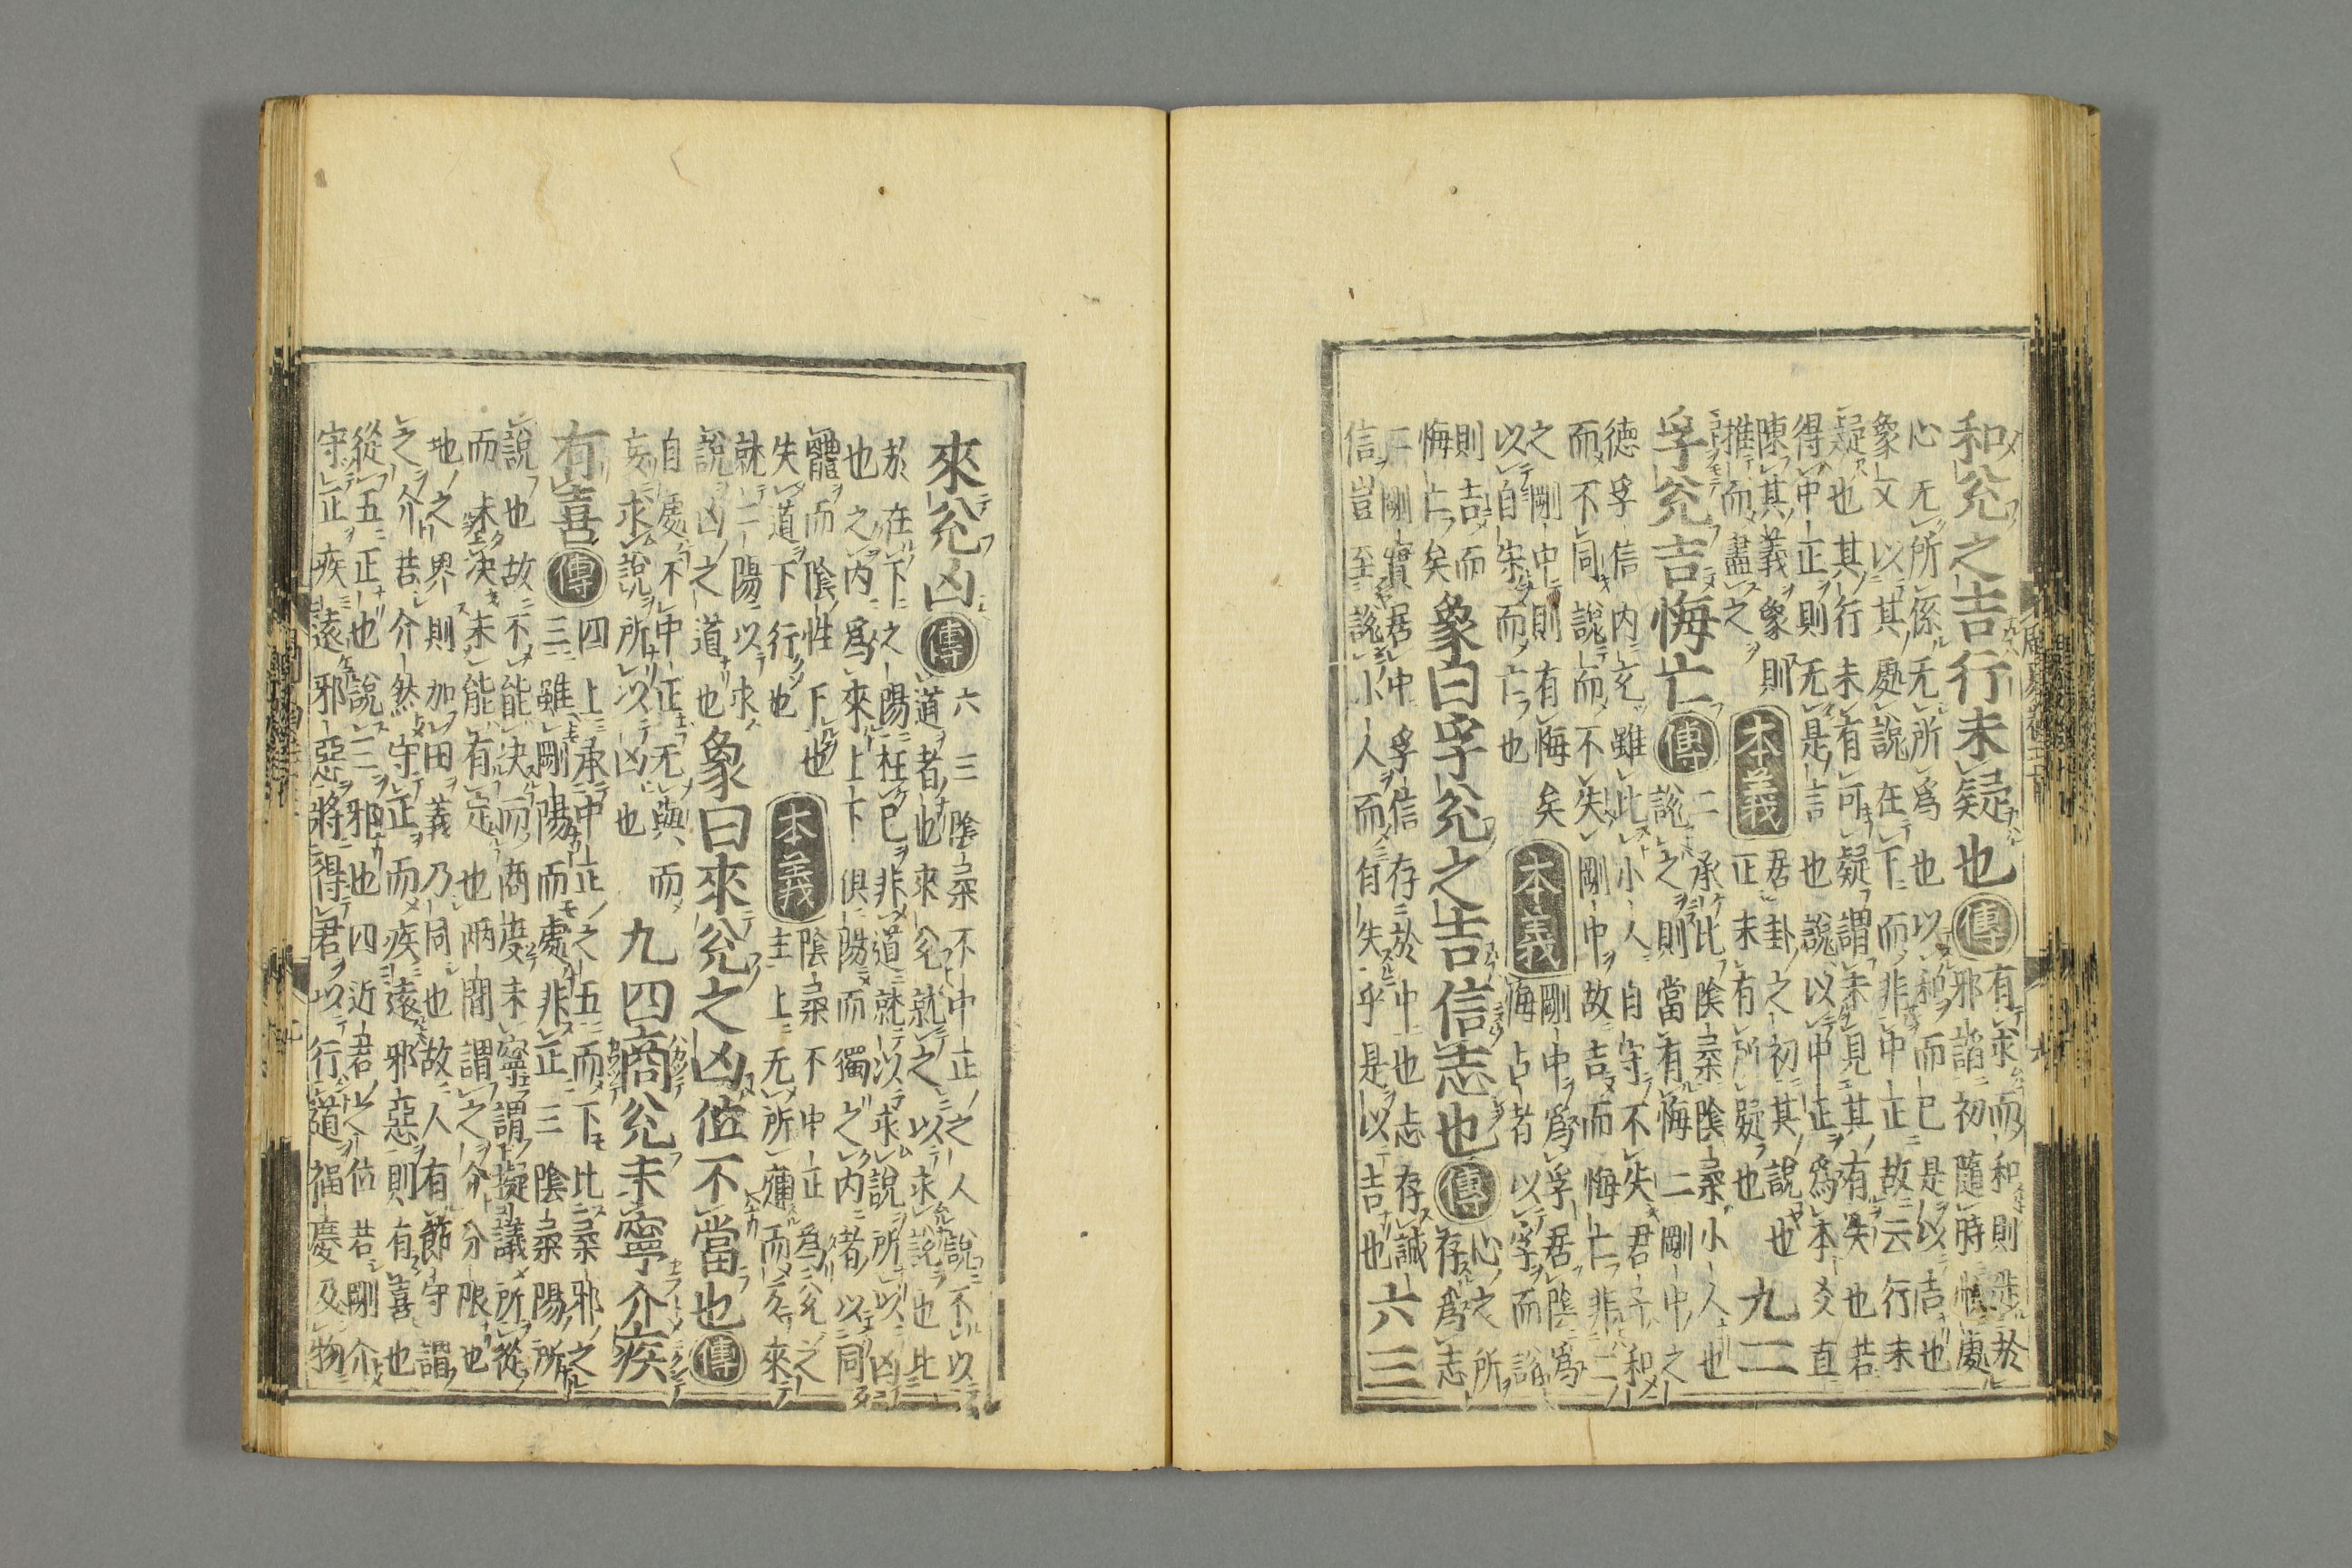 和兌之吉行未疑也傳有求而和則涉於
邪諂初隨時順處
心无所係无所爲也以和而已是以吉也
象又以其處說在下而非中正故云行未
疑也其行未有可疑謂未見其有失也若
得中正則无是言也說以中正爲本爻直
陳其義象則
推而盡之本義居卦之初其說也
正未有所疑也九二
孚兌吉悔亡傳二承比陰柔陰柔小人也
說之則當有悔二剛中之
德孚信內充雖比小人自守不失君子和
而不同說而不失剛中故吉而悔亡非二
之剛中則有悔矣
以自守而亡也本義剛中爲孚居陰爲
悔占者以孚而說
則吉而
悔亡矣象曰孚兌之吉信志也傳心之所
存爲志
二剛實居中孚信存於中也志存誠
信豈至說小人而有失乎是以吉也六三
來兌凶傳六三陰柔不中正之人說不以
道者也來兌就之以求說也比
於在下之陽枉己非道就以求說所以凶
也之內爲來上下俱陽而獨之內者以同
體而陰性下也
失道下行也本義陰柔不中正爲兌之
主上无所應而反來
就二陽以求
說凶之道也象曰來兌之凶位不當也傳
自處不中正无與而
妄求說所以凶也九四商兌未寧介疾
有喜傳四上承中正之五而下比柔邪之
三雖剛陽而處非正三陰柔陽所
說也故不能決而商度未寧謂擬議所從
而未決未能有定也兩間謂之介分限也
地之界則加田義乃同也故人有節守謂
之介若介然守正而疾遠邪惡則有喜也
從五正也說三邪也四近君之位若剛介
守正疾遠邪惡將得君以行道福慶及物